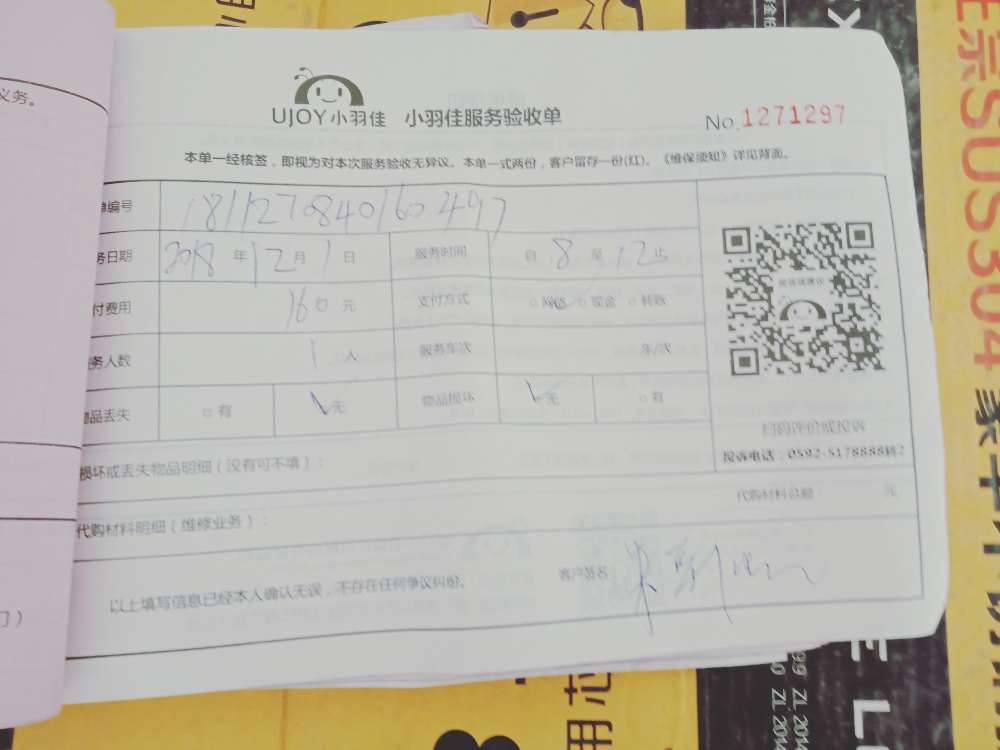 义务。
UJOY小羽佳 小羽佳服务验收单 No.1271297
本单一经核签，即视为对本次服务验收无异议。本单一式两份，客户留存一份(红)。《维保须知》详见背面。
单编号 1811270840160497
务日期 2018年12月1日 服务时间 自8至12止
付费用 160元 支付方式 网络 现金 转账
务人数 1人 服务车次 车/次
物品丢失 有 无 物品损坏 无 有
扫码评价或投诉
投诉电话：0592-5178888转2
损坏或丢失物品明细（没有可不填）：
代购材料总额 元
代购材料明细（维修业务）：
以上填写信息已经本人确认无误，不存在任何争议纠纷。 客户签名
门）
SUS304
用芯